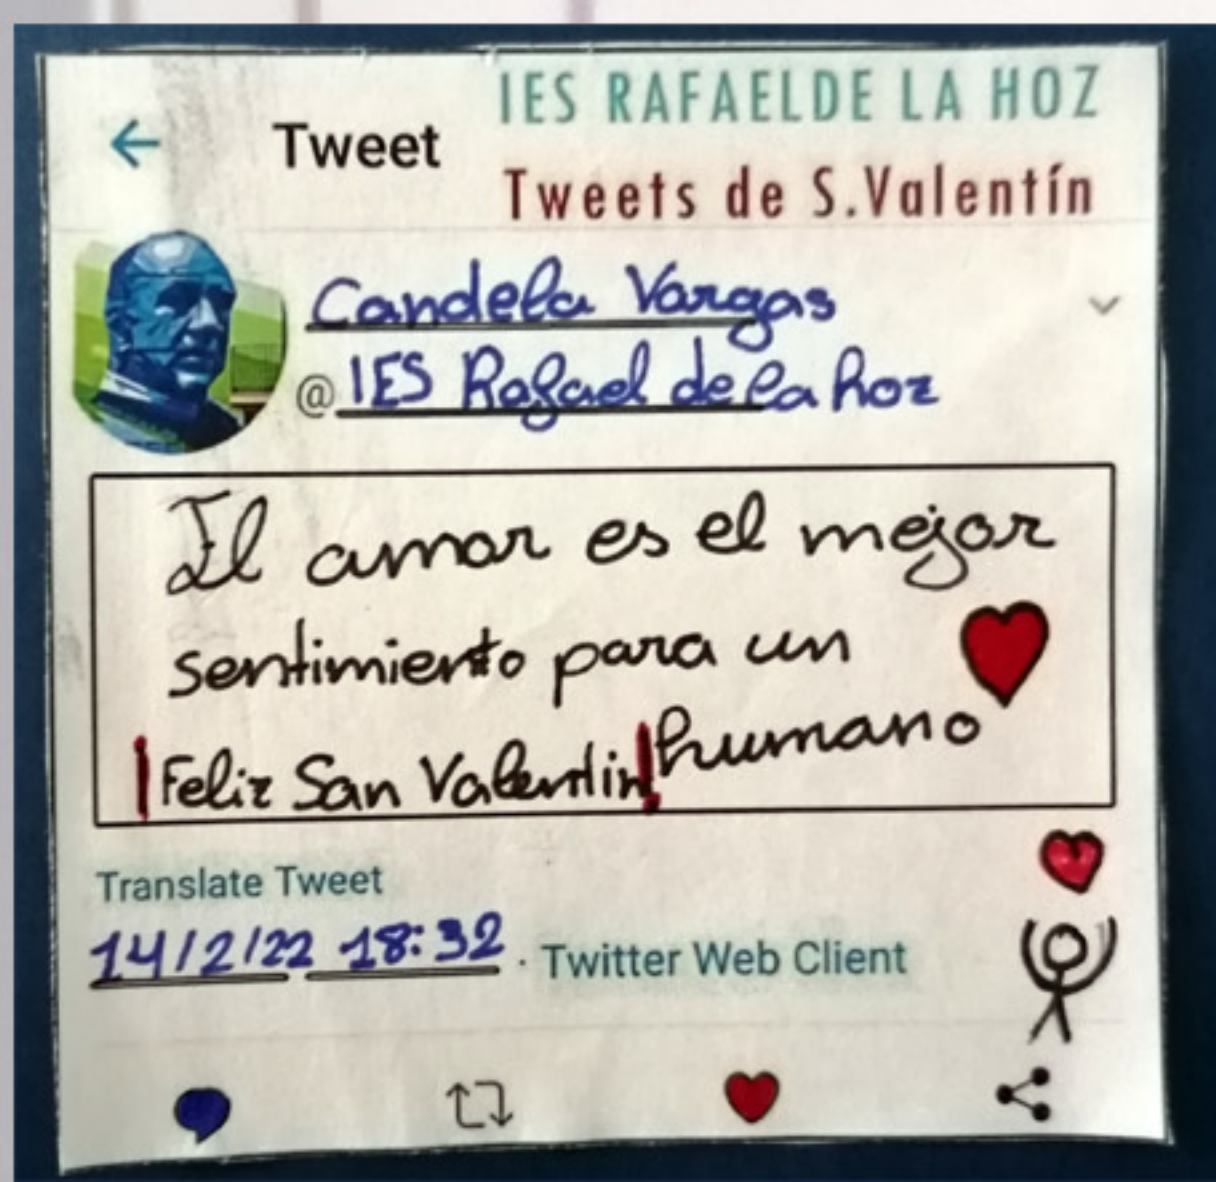 IES RAFAELDE LA HOZ
Tweet
Tweets de S.Valentín
Candela Vargas
@IES Rafael de la hoz
El amor es el mejor
sentimiento para un
humano
¡Feliz San Valentin!
Translate Tweet
14/2/22 18:32 · Twitter Web Client